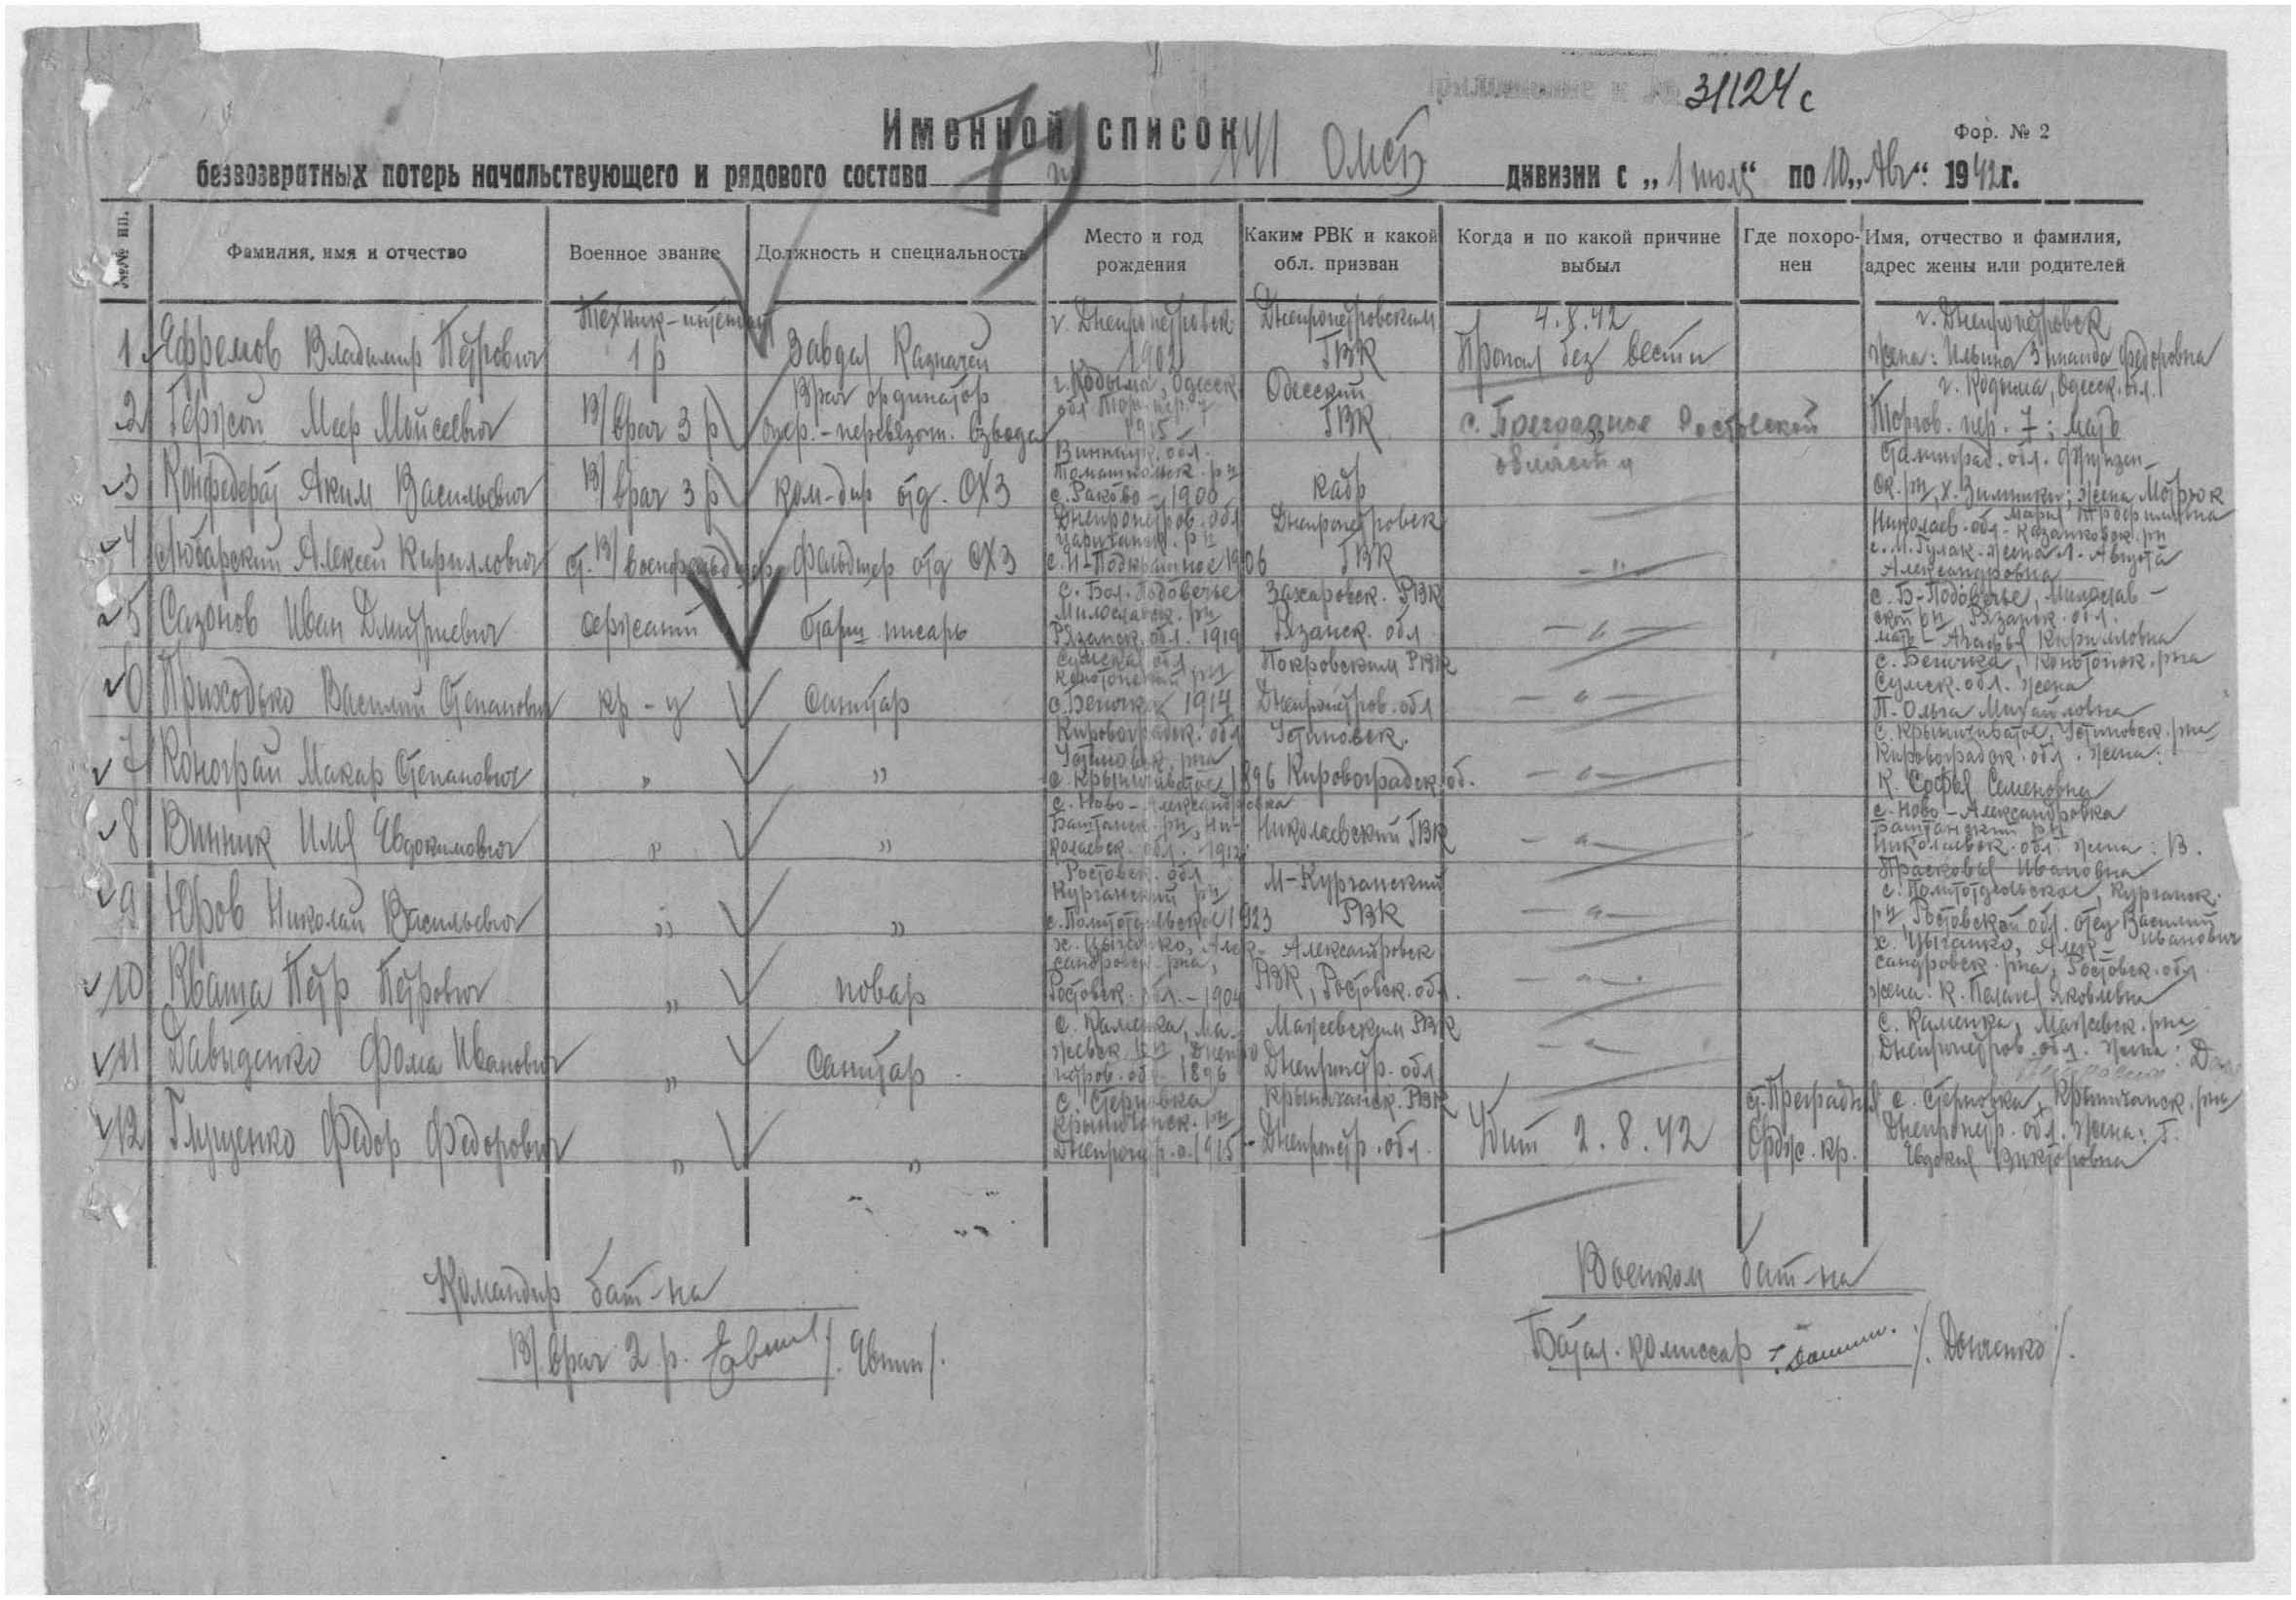 31124с
Именной список
Фор. № 2
безвозвратных потерь начальствующего и рядового состава 141 ОМСБ дивизии с „1 июля“ по 10 „Авг“. 1942 г.
№№ пп. Фамилия, имя и отчество Военное звание Должность и специальность Место и год рождения Каким РВК и какой обл. призван Когда и по какой причине выбыл Где похоронен Имя, отчество и фамилия, адрес жены или родителей
1 Ефремов Владимир Петрович Техник-интендант 1 р Завдел Казначей г. Днепропетровск 1902 Днепропетровским ГВК 4.8.42 Пропал без вести г. Днепропетровск жена: Ильина Зинаида Федоровна
2 Гержой Меер Мойсеевич В/врач 3 р Врач ординатор опер.-перевязочн. взвода г. Кодыма, Одесск обл. Торг. пер. 7 1915 Одесский ГВК с. Преградное Ростовской области г. Кодыма, Одесск. обл. Торгов. пер. 7; мать
3 Конфедерат Аким Васильевич В/врач 3 р ком-дир отд. ОХЗ Винницк. обл. Томашпольск. р-н с. Раково - 1900 кадр Сталинград. обл. Фрунзен-ск. р-н, х. Зимники; жена Мотрюк Мария Трофимовна
4 Любарский Алексей Кириллович ст. в/военфельдшер фельдшер отд ОХЗ Днепропетров. обл Царичанск. р-н с. Н-Подкрайное 1906 Днепропетровск ГВК -"- Николаев. обл. Казанковск. р-н с. М. Гулак. жена Л. Августа Александровна
5 Сазонов Иван Дмитриевич сержант старш. писарь с. Бол. Подовечье Милославск. р-н Рязанск. обл. 1919 Захаровск. РВК Рязанск. обл -"- с. Б-Подовечье, Милослав-ской р-н, Рязанск. обл. мать - Агафья Кирилловна
6 Приходько Василий Степанович кр-ц Санитар Сумская обл Конотопский р-н с. Беличка 1914 Покровским РВК Днепропетров. обл -"- с. Беличка, Конотопск. р-на Сумск. обл. жена П. Ольга Михайловна
7 Коноград Макар Степанович " " Кировоградск. обл Устиновск. р-на с. Крыничеватое 1896 Устиновск. Кировоградск. об. -"- с. Крыничеватое, Устиновск. р-на Кировоградск. обл. жена: К. Софья Семеновна
8 Винник Илья Евдокимович " " с. Ново-Александровка Баштанск. р-н, Николаевск. обл. - 1912 Николаевский ГВК -"- с. Ново-Александровка Баштанский р-н Николаевск. обл. жена: В. Прасковья Ивановна
9 Юров Николай Васильевич " " Ростовск. обл Курганский р-н с. Политотдельское 1923 М-Курганский РВК -"- с. Политотдельское, Курганск. р-н Ростовской обл. отец Василий Иванович
10 Кваша Петр Петрович " повар х. Цыганко, Алек-сандровск. р-на, Ростовск. обл. - 1904 Александровск РВК, Ростовск. обл. -"- х. Цыганко, Алек-сандровск. р-на, Ростовск. обл жена. К. Пелагея Яковлевна
11 Давыденко Фома Иванович " Санитар с. Каменка, Ма-жевск. р-н Днепро петров. об. 1896 Мажевским РВК Днепропетр. обл -"- с. Каменка, Мажевск. р-на Днепропетров. обл. жена: Д
12 Глущенко Федор Федорович " " с. Терновка Крыничанск. р-н Днепропетр. о. 1915 Крыничанск. РВК Днепропетр. обл. Убит 2.8.42 ст. Преградная Ордж. кр. с. Терновка, Крыничанск. р-на Днепропетр. обл. жена: Г. Евдокия Викторовна
Командир бат-на
В/врач 2 р. /Явтин/.
Военком бат-на
Батал. комиссар /Донченко/.